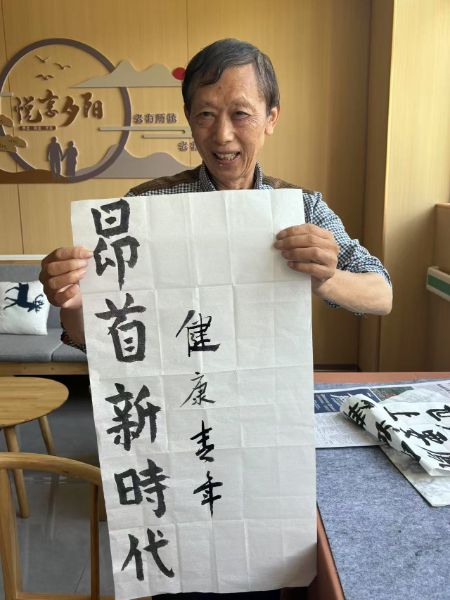 悦享夕阳
老有所
昂首新時代
健康青年